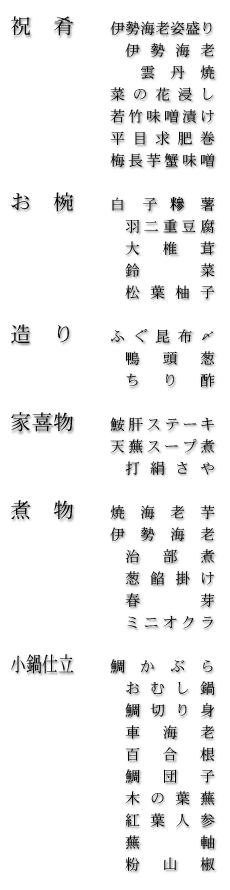 祝肴 伊勢海老姿盛り
伊勢海老
雲丹焼
菜の花浸し
若竹味噌漬け
平目求肥巻
梅長芋蟹味噌
お椀 白子糝薯
羽二重豆腐
大椎茸
鈴菜
松葉柚子
造り ふぐ昆布〆
鴨頭葱
ちり酢
家喜物 鮟肝ステーキ
天蕪スープ煮
打絹さや
煮物 焼海老芋
伊勢海老
治部煮
葱餡掛け
春芽
ミニオクラ
小鍋仕立 鯛かぶら
おむし鍋
鯛切り身
車海老
百合根
鯛団子
木の葉蕪
紅葉人参
蕪軸
粉山椒